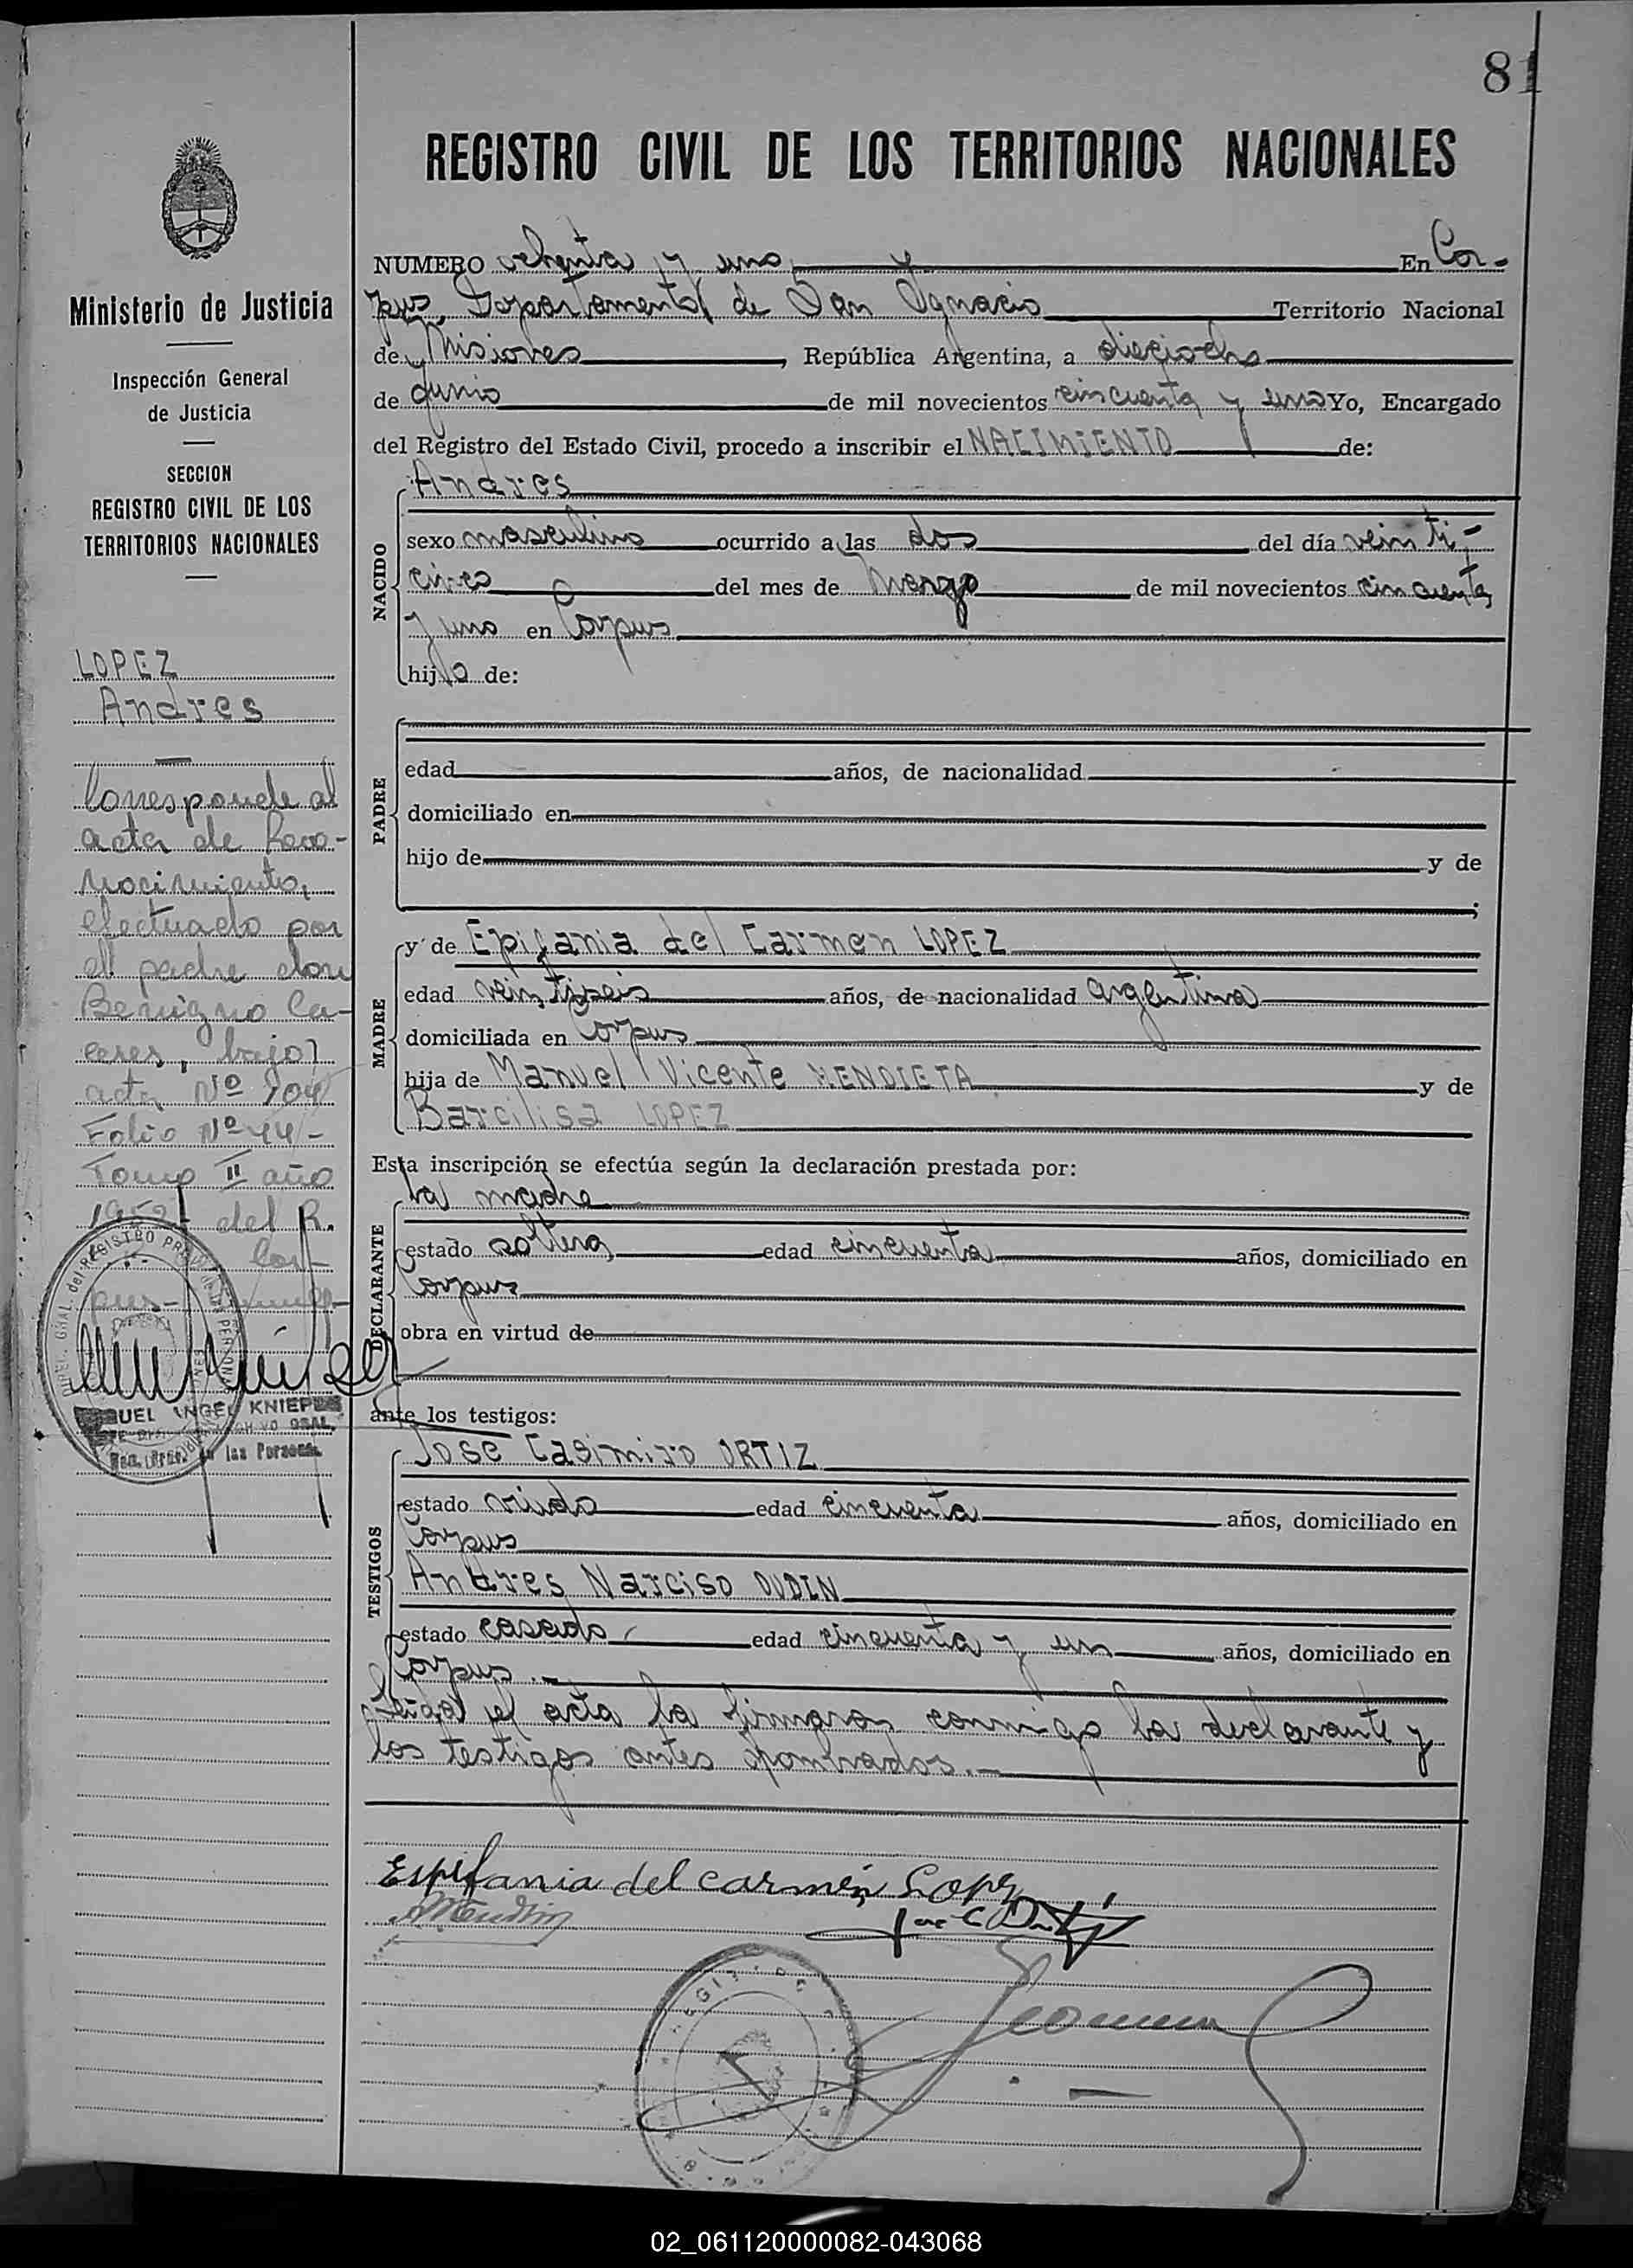 81
REGISTRO CIVIL DE LOS TERRITORIOS NACIONALES
NUMERO ochenta y uno En Cor-
pus, Departamento de San Ignacio Territorio Nacional
de Misiones, República Argentina, a dieciocho
de Junio de mil novecientos cincuenta y uno Yo, Encargado
del Registro del Estado Civil, procedo a inscribir el NACIMIENTO de:
NACIDO
Andres
sexo masculino ocurrido a las dos del día veinti-
cinco del mes de Marzo de mil novecientos cincuenta
y uno en Corpus
hijo de:
PADRE
edad años, de nacionalidad
domiciliado en
hijo de y de
;
MADRE
y de Epifania del Carmen LOPEZ
edad veintiseis años, de nacionalidad argentina
domiciliada en Corpus
hija de Manuel Vicente MENDIETA y de
Barcilisa LOPEZ
Esta inscripción se efectúa según la declaración prestada por:
DECLARANTE
La madre
estado soltera edad cincuenta años, domiciliado en
Corpus
obra en virtud de
ante los testigos:
TESTIGOS
Jose Casimiro ORTIZ
estado viudo edad cincuenta años, domiciliado en
Corpus
Andres Narciso DUDIN
estado casado edad cincuenta y un años, domiciliado en
Corpus.-
Leida el acta la firmaron conmigo la declarante y
los testigos antes nombrados.-
Espifania del carmen Lopez
Ministerio de Justicia
Inspección General
de Justicia
SECCION
REGISTRO CIVIL DE LOS
TERRITORIOS NACIONALES
LOPEZ
Andres
Corresponde al
acta de Reco-
nocimiento,
efectuado por
el padre don
Benigno Ca-
ceres, bajo
acta Nº 904
Folio Nº 44-
Tomo II año
del R.
Cor-
pus-
ANGEL KNIEP
las Personas
02_061120000082-043068